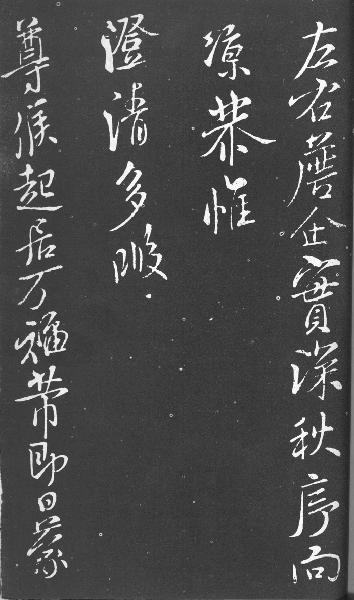 左右企實深秋序向
涼恭惟
澄清多暇
尊候起居万福芾即日蒙